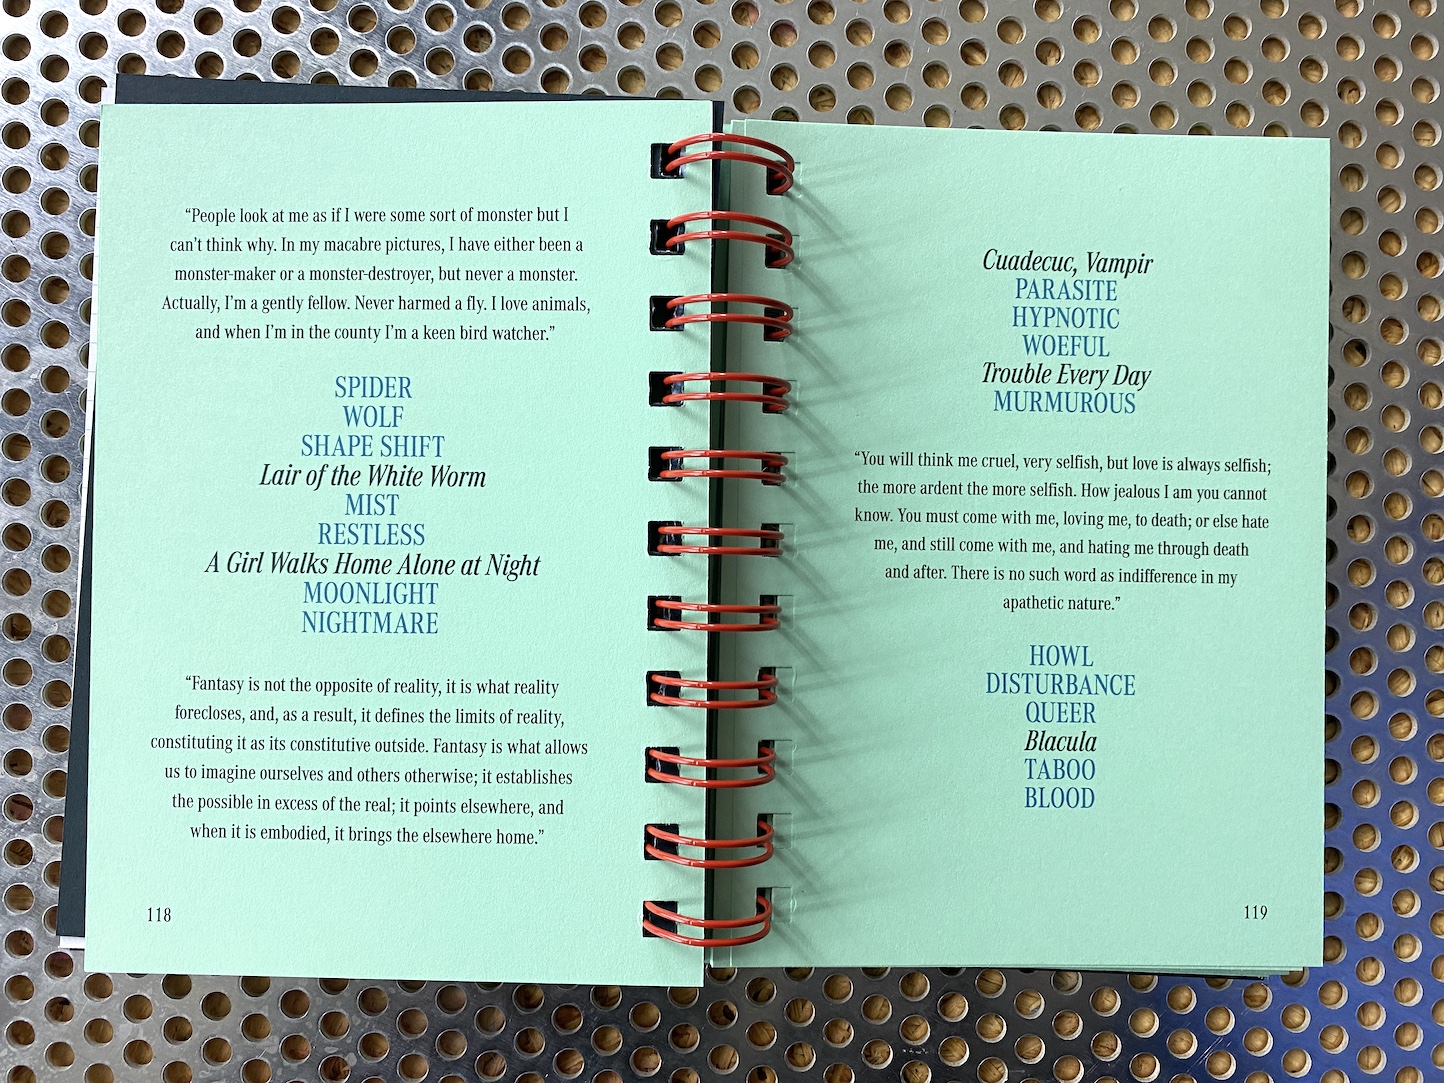 “People look at me as if I were some sort of monster but I
can’t think why. In my macabre pictures, I have either been a
monster-maker or a monster-destroyer, but never a monster.
Actually, I’m a gently fellow. Never harmed a fly. I love animals,
and when I’m in the county I’m a keen bird watcher.”
SPIDER
WOLF
SHAPE SHIFT
Lair of the White Worm
MIST
RESTLESS
A Girl Walks Home Alone at Night
MOONLIGHT
NIGHTMARE
“Fantasy is not the opposite of reality, it is what reality
forecloses, and, as a result, it defines the limits of reality,
constituting it as its constitutive outside. Fantasy is what allows
us to imagine ourselves and others otherwise; it establishes
the possible in excess of the real; it points elsewhere, and
when it is embodied, it brings the elsewhere home.”
118
Cuadecuc, Vampir
PARASITE
HYPNOTIC
WOEFUL
Trouble Every Day
MURMUROUS
“You will think me cruel, very selfish, but love is always selfish;
the more ardent the more selfish. How jealous I am you cannot
know. You must come with me, loving me, to death; or else hate
me, and still come with me, and hating me through death
and after. There is no such word as indifference in my
apathetic nature.”
HOWL
DISTURBANCE
QUEER
Blacula
TABOO
BLOOD
119